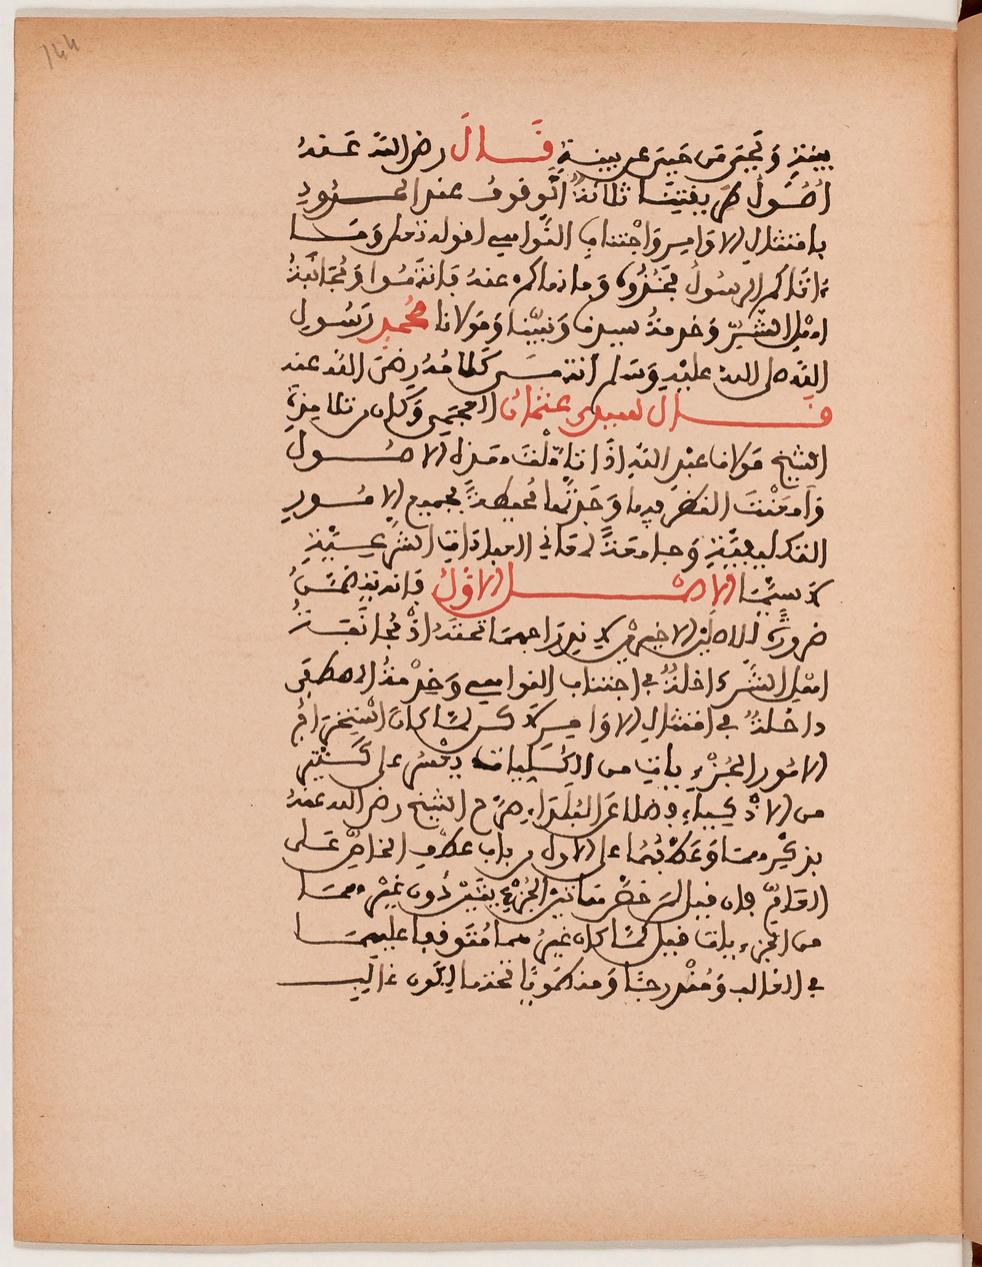 144
بينة ويحيى من حيى عن بينة قال رضي الله عنه
أصول طريقتنا ثلاثة الوقوف عند الحدود
بامتثال الاوامر واجتناب النواهي لقوله تعلى وما
ءاتاكم الرسول فخذوه وما نهاكم عنه فانتهوا ومجانبة
اهل الشر وخدمة سيدنا ونبينا ومولانا محمد رسول
الله صلى الله عليه وسلم انتهى كلامه رضي الله عنه
قال سيدي عثمان العجمي وكان من تلامذة
الشيخ مولانا عبد الله اذا تاملت هذه الاصول
وأمعنت الفكر فيها وجدتها محيطة بجميع الامور
التكليفية وجامعة لمعاني العبادات الشرعية
لا سيما الاصل الاول فانه يتضمن
ضرورة الاصلين الاخيرين لاندراجهما تحته اذ مجانبة
اهل الشر داخلة في اجتناب النواهي وخدمة المصطفى
داخلة في امتثال الاوامر لاكن لما كان استخراج
الامور الجزءيات من الكليات يعسر على كثير
من الاذكياء فضلا عن البلداء صرح الشيخ رضي الله عنه
بذكرهما وعطفهما على الاول من باب عطف الخاص على
العام فان قيل لم خص هاتين الجزءيتين دون غيرهما
من الجزءيات قيل لما كان غيرهما متوقفا عليهما
في الغالب ومندرجا ومنطويا تحتهما ليكون غالب